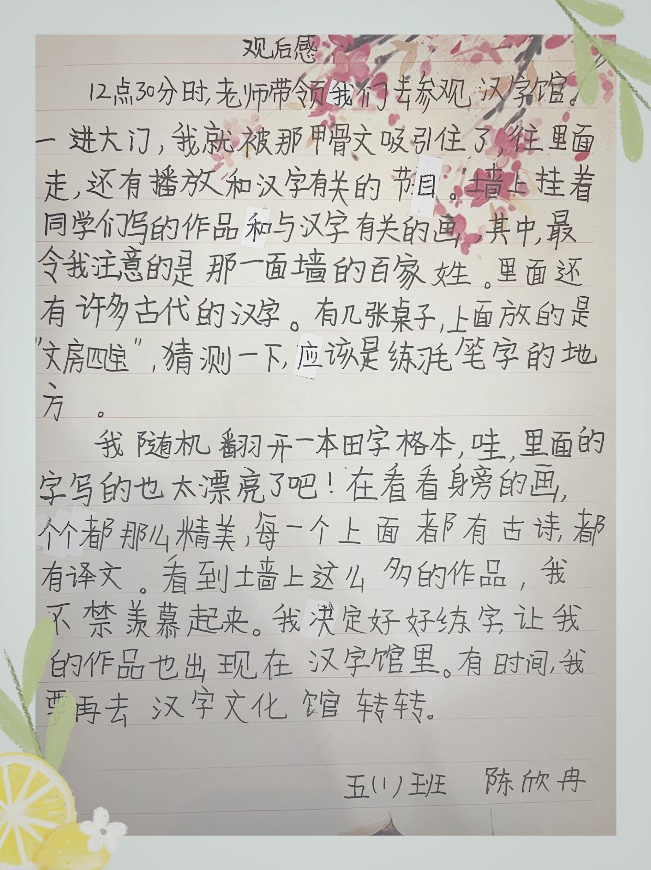 观后感
12点30分时,老师带领我们去参观汉字馆。
一进大门,我就被那甲骨文吸引住了,往里面
走,还有播放和汉字有关的节目。墙上挂着
同学们写的作品和与汉字有关的画,其中,最
令我注意的是那一面墙的百家姓。里面还
有许多古代的汉字。有几张桌子,上面放的是
"文房四宝",猜测一下,应该是练毛笔字的地
方。
我随机翻开一本田字格本,哇,里面的
字写的也太漂亮了吧!在看看身旁的画,
个个都那么精美,每一个上面都有古诗,都
有译文。看到墙上这么多的作品,我
不禁羡慕起来。我决定好好练字,让我
的作品也出现在汉字馆里。有时间,我
要再去汉字文化馆转转。
五(1)班 陈欣冉